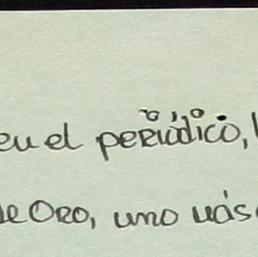 en el periódico,
de Oro, uno más